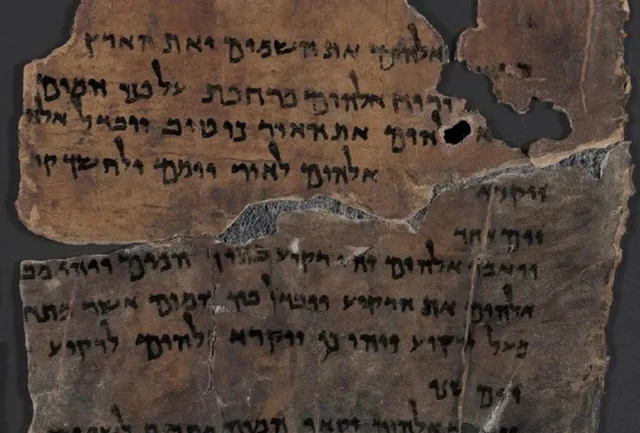 אלהים את השמים ואת הארץ
ורוח אלהים מרחפת על פני המים
אלהים את האור כי טוב ויבדל אלה
אלהים לאור יומם ולחשך קר
יום אחד
ויאמר אלהים יהי רקיע בתוך המים ויהי מב
אלהים את הרקיע ויבדל בין המים אשר מתח
מעל לרקיע ויהי כן ויקרא אלהים לרקיע
יום שני
אלהים המים מתחת